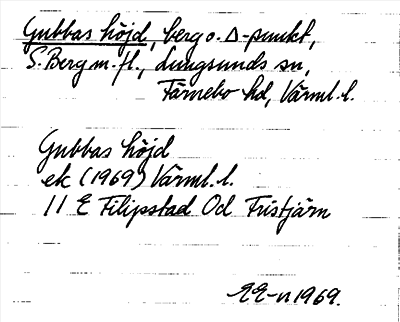 Gubbas höjd, berg o. Δ-punkt,
S. Berg m. fl., Lungsunds sn,
Färnebo hd, Värml. l.
Gubbas höjd
ek (1969) Värml. l.
11 E Filipstad Od Fristjärn
EE-n 1969.